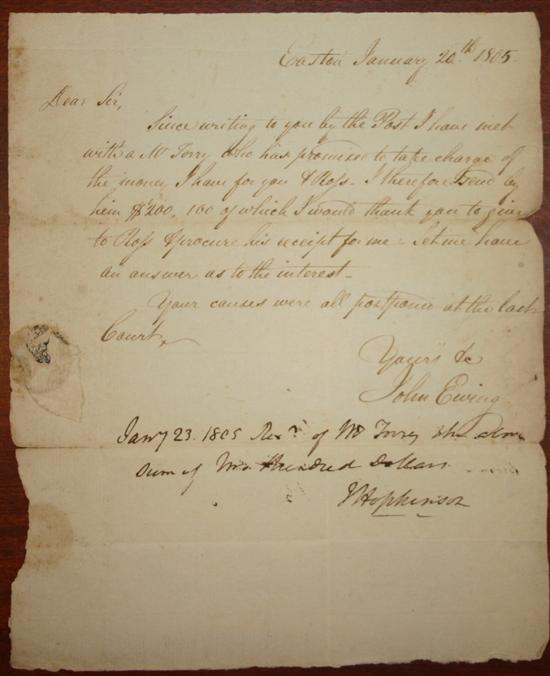 Easton January 20th 1805.
Dear Sir,
Since writing to you by the Post I have met
with a Mr Torry who has promised to take charge of
the money I have for you & Ross - I therefore send by
him $200, 100 of which I would thank you to give
to Ross & procure his receipt for me - Let me have
an answer as to the interest -
Your causes were all postponed at the last
Court
Yours &c
John Ewing
Jany 23. 1805 Recd of Mr Torry the above
sum of two Hundred Dollars
J Hopkinson